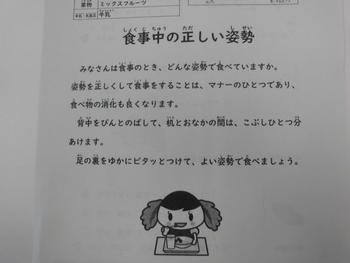 果物 ミックスフルーツ
牛乳・乳製品 牛乳
食事中の正しい姿勢
みなさんは食事のとき、どんな姿勢で食べていますか。
姿勢を正しくして食事をすることは、マナーのひとつであり、
食べ物の消化も良くなります。
背中をぴんとのばして、机とおなかの間は、こぶしひとつ分
あけます。
足の裏をゆかにピタッとつけて、よい姿勢で食べましょう。